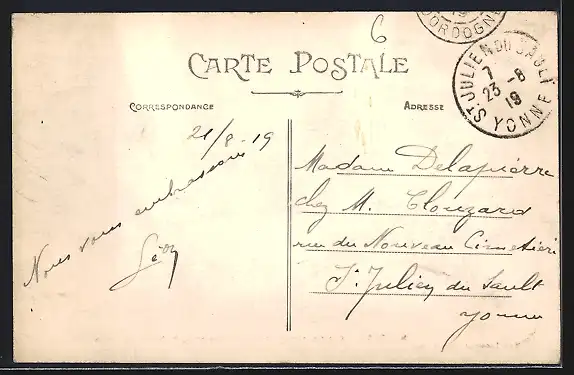 DORDOGNE
6
CARTE POSTALE
ST JULIEN DU SAULT
7
23-8
19
YONNE
CORRESPONDANCE
ADRESSE
21/8-19
Nous vous embrassons
Léon
Madame Delapierre
chez M. Clouzard
rue du Nouveau Cimetière
St Julien du Sault
Yonne